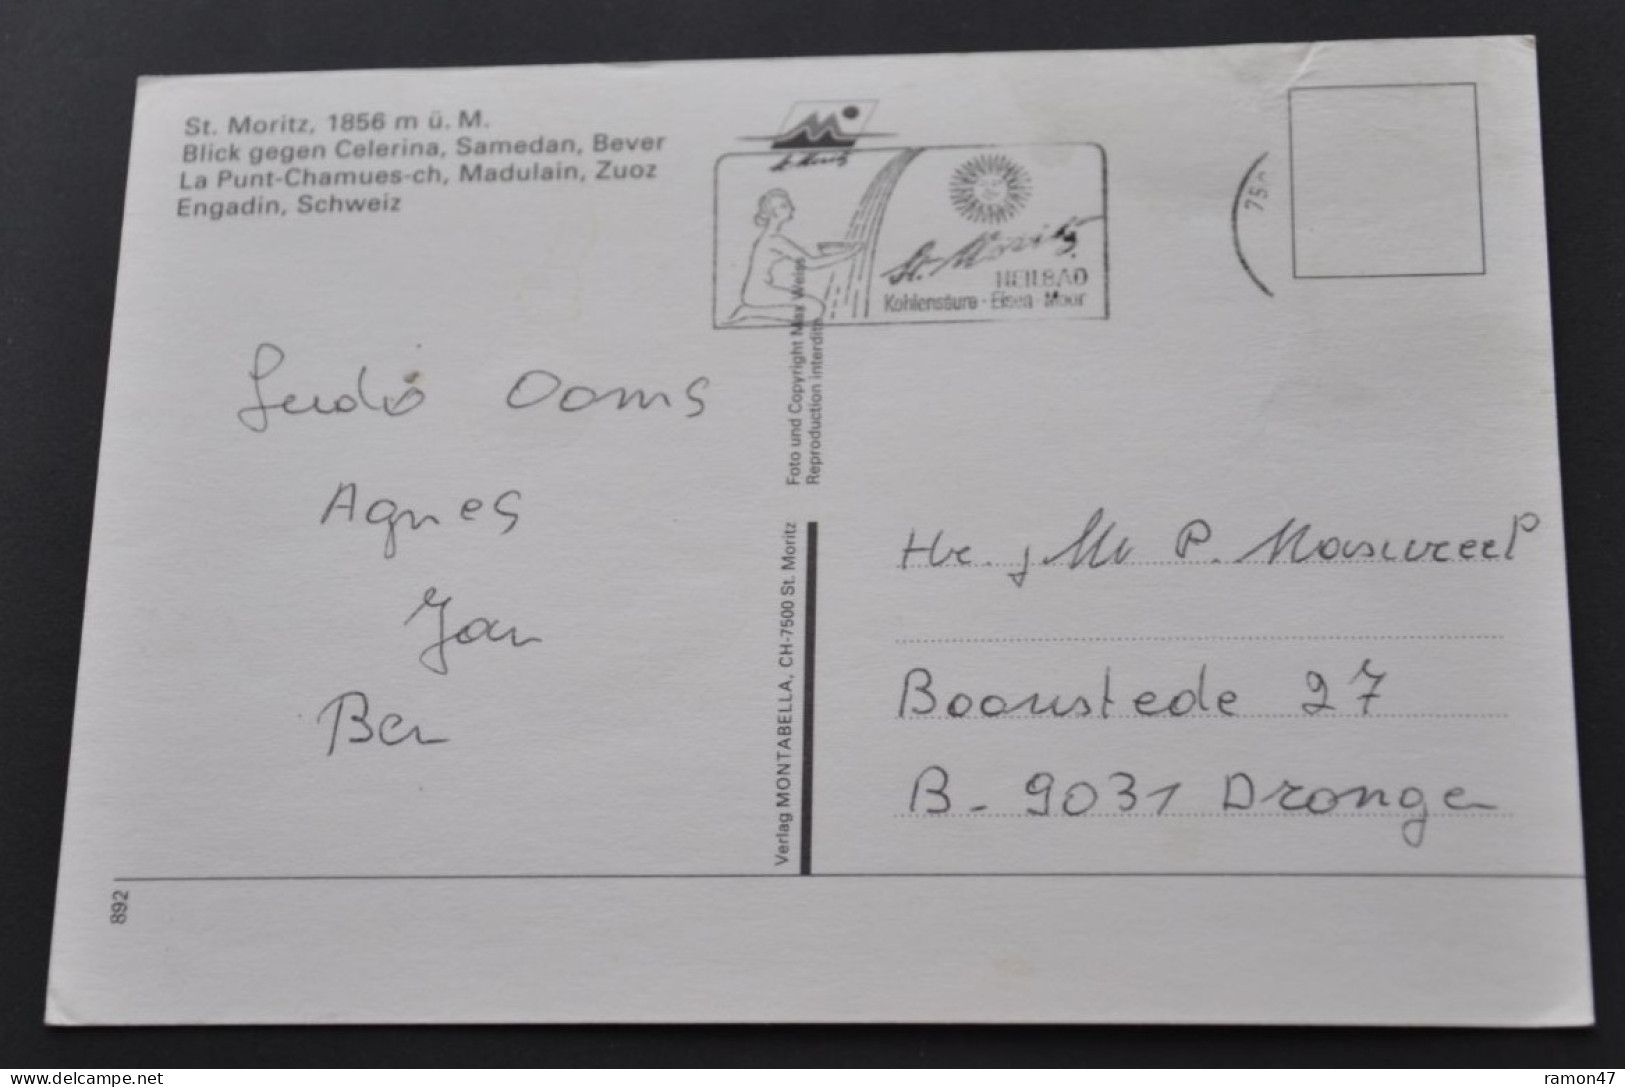 St. Moritz, 1856 m ü. M.
Blick gegen Celerina, Samedan, Bever
La Punt-Chamues-ch, Madulain, Zuoz
Engadin, Schweiz
St. Moritz
St. Moritz
HEILBAD
Kohlensäure - Eisen - Moor
Ludo Ooms
Agnes
Jan
Ben
Foto und Copyright Max Weiss
Reproduction interdite
Verlag MONTABELLA, CH-7500 St. Moritz
Hr. P.
Boonstede 27
B- 9031 Drongen
892
delcampe.net
ramon47